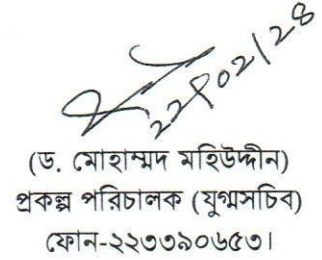 ২২/০১/২৪
(ড. মোহাম্মদ মহিউদ্দীন)
প্রকল্প পরিচালক (যুগ্মসচিব)
ফোন-২২৩৩৯০৬৫৩।